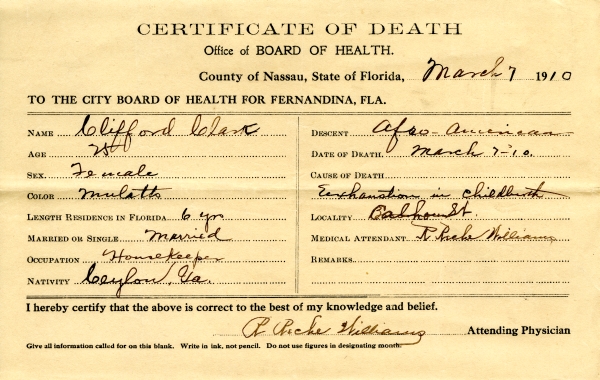 CERTIFICATE OF DEATH
Office of BOARD OF HEALTH.
County of Nassau, State of Florida, March 7 1910
TO THE CITY BOARD OF HEALTH FOR FERNANDINA, FLA.
NAME Clifford Clark
AGE 25
SEX. Female
COLOR Mulatto
LENGTH RESIDENCE IN FLORIDA 6 yr
MARRIED OR SINGLE Married
OCCUPATION Housekeeper
NATIVITY Ceylon, Ga.
DESCENT Afro-American
DATE OF DEATH. March 7-10.
CAUSE OF DEATH
Exhaustion in childbirth
LOCALITY Calhoun St.
MEDICAL ATTENDANT R Williams
REMARKS
I hereby certify that the above is correct to the best of my knowledge and belief.
R Williams Attending Physician
Give all information called for on this blank. Write in ink, not pencil. Do not use figures in designating month.